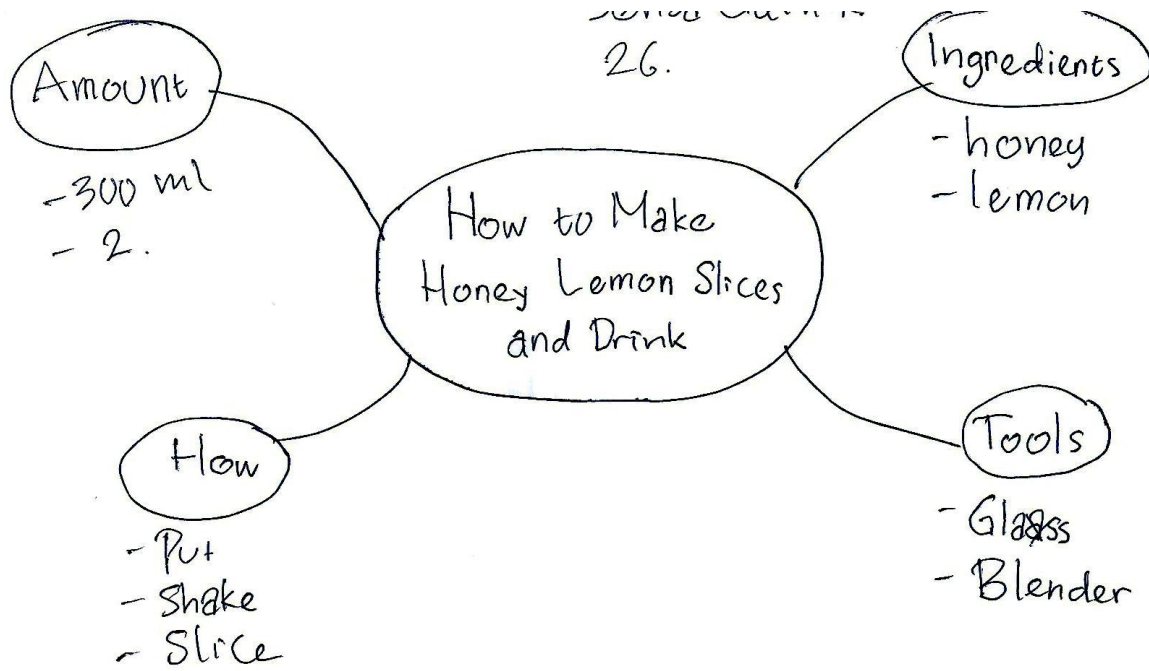 26.
Amount
- 300 ml
- 2.
Ingredients
- honey
- lemon
How to Make
Honey Lemon Slices
and Drink
How
- Put
- Shake
- Slice
Tools
- Glass
- Blender